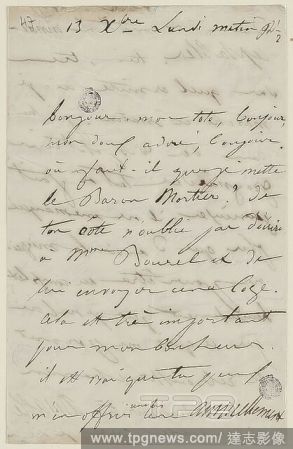 47
13 Xbre Lundi matin 9h ½
bonjour mon toto, bonjour,
mon doux adoré, bonjour.
où faut-il que je mette
le Baron Mortier? De
ton côté n'oublie pas d'écrire
à Mme Bourel et de
lui envoyer une loge.
cela est très important
pour mon bonheur.
il est vrai que tu peux
m'en offrir une
www.tpgnews.com / 達志影像